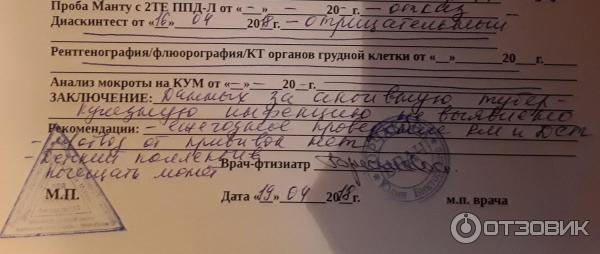 Проба Манту с 2ТЕ ППД-Л от «–» – 20–г. – отказ
Диаскинтест от «16» 04 2018г. – отрицательный
Рентгенография/флюорография/КТ органов грудной клетки от «__»______20___г.
Анализ мокроты на КУМ от «–»– 20–г.
ЗАКЛЮЧЕНИЕ: Данных за активную тубер-
кулезную инфекцию не выявлено
Рекомендации: – ежегодное проведение RM и ДСТ
– м/отвод от прививок нет
– детский коллектив
посещать может
Врач-фтизиатр
Дата «19» 04 2018г.
М.П.
м.п. врача
ОТЗОВИК